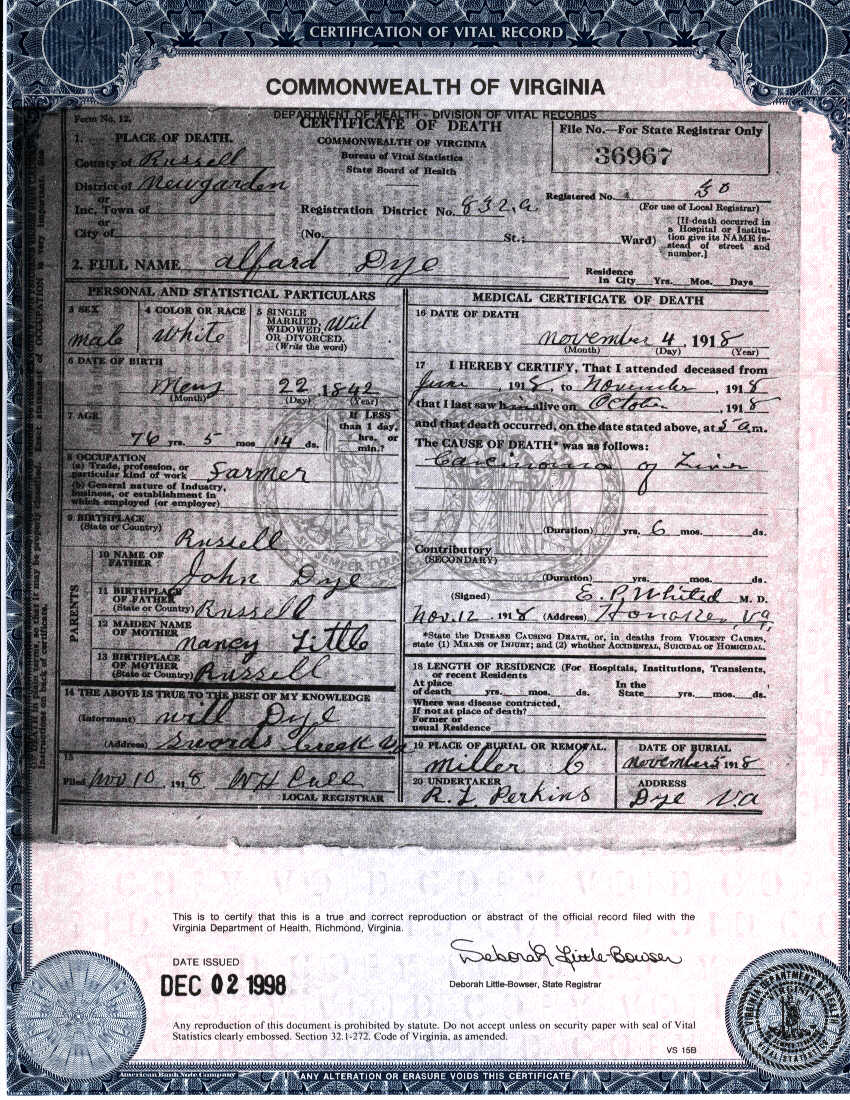 CERTIFICATION OF VITAL RECORD
COMMONWEALTH OF VIRGINIA
DEPARTMENT OF HEALTH - DIVISION OF VITAL RECORDS
Form No. 12.
CERTIFICATE OF DEATH
COMMONWEALTH OF VIRGINIA
Bureau of Vital Statistics
State Board of Health
File No.—For State Registrar Only
36967
1. PLACE OF DEATH.
County of Russell
District of Newgarden
or
Inc. Town of
or
City of
Registration District No. 832.a
Registered No.
(For use of Local Registrar)
(No. St.; Ward)
[If death occurred in a Hospital or Institution give its NAME instead of street and number.]
2. FULL NAME alfard Dye
Residence In City Yrs. Mos. Days
PERSONAL AND STATISTICAL PARTICULARS
3 SEX
male
4 COLOR OR RACE
White
5 SINGLE MARRIED, WIDOWED, OR DIVORCED. (Write the word)
Wid
6 DATE OF BIRTH
22 1842
(Month) (Day) (Year)
7 AGE
76 yrs. 5 mos 14 ds.
If LESS than 1 day, hrs. or min.?
8 OCCUPATION
(a) Trade, profession, or particular kind of work Farmer
(b) General nature of Industry, business, or establishment in which employed (or employer)
9 BIRTHPLACE (State or Country)
Russell
PARENTS
10 NAME OF FATHER
John Dye
11 BIRTHPLACE OF FATHER (State or Country) Russell
12 MAIDEN NAME OF MOTHER
nancy Little
13 BIRTHPLACE OF MOTHER (State or Country) Russell
14 THE ABOVE IS TRUE TO THE BEST OF MY KNOWLEDGE
(Informant) Will Dye
(Address) Swords Creek Va
15
Filed Nov 10, 1918
LOCAL REGISTRAR
MEDICAL CERTIFICATE OF DEATH
16 DATE OF DEATH
November 4, 1918
(Month) (Day) (Year)
17 I HEREBY CERTIFY, That I attended deceased from
June, 1918, to November, 1918
that I last saw him alive on October, 1918
and that death occurred, on the date stated above, at 5 a.m.
The CAUSE OF DEATH* was as follows:
Carcinoma of Liver
(Duration) yrs. 6 mos. ds.
Contributory
(SECONDARY)
(Duration) yrs. mos. ds.
(Signed) E. P. Whited M. D.
Nov. 12, 1918 (Address) Honaker, Va.
*State the DISEASE CAUSING DEATH, or, in deaths from VIOLENT CAUSES, state (1) MEANS OF INJURY; and (2) whether ACCIDENTAL, SUICIDAL or HOMICIDAL.
18 LENGTH OF RESIDENCE (For Hospitals, Institutions, Transients, or recent Residents
At place of death yrs. mos. ds. In the State yrs. mos. ds.
Where was disease contracted, If not at place of death?
Former or usual Residence
19 PLACE OF BURIAL OR REMOVAL.
Miller C
DATE OF BURIAL
November 5 1918
20 UNDERTAKER
R. L. Perkins
ADDRESS
Dye Va
This is to certify that this is a true and correct reproduction or abstract of the official record filed with the
Virginia Department of Health, Richmond, Virginia.
DATE ISSUED
DEC 02 1998
Deborah Little-Bowser
Deborah Little-Bowser, State Registrar
Any reproduction of this document is prohibited by statute. Do not accept unless on security paper with seal of Vital
Statistics clearly embossed. Section 32.1-272. Code of Virginia, as amended.
VS 15B
American Bank Note Company
ANY ALTERATION OR ERASURE VOIDS THIS CERTIFICATE